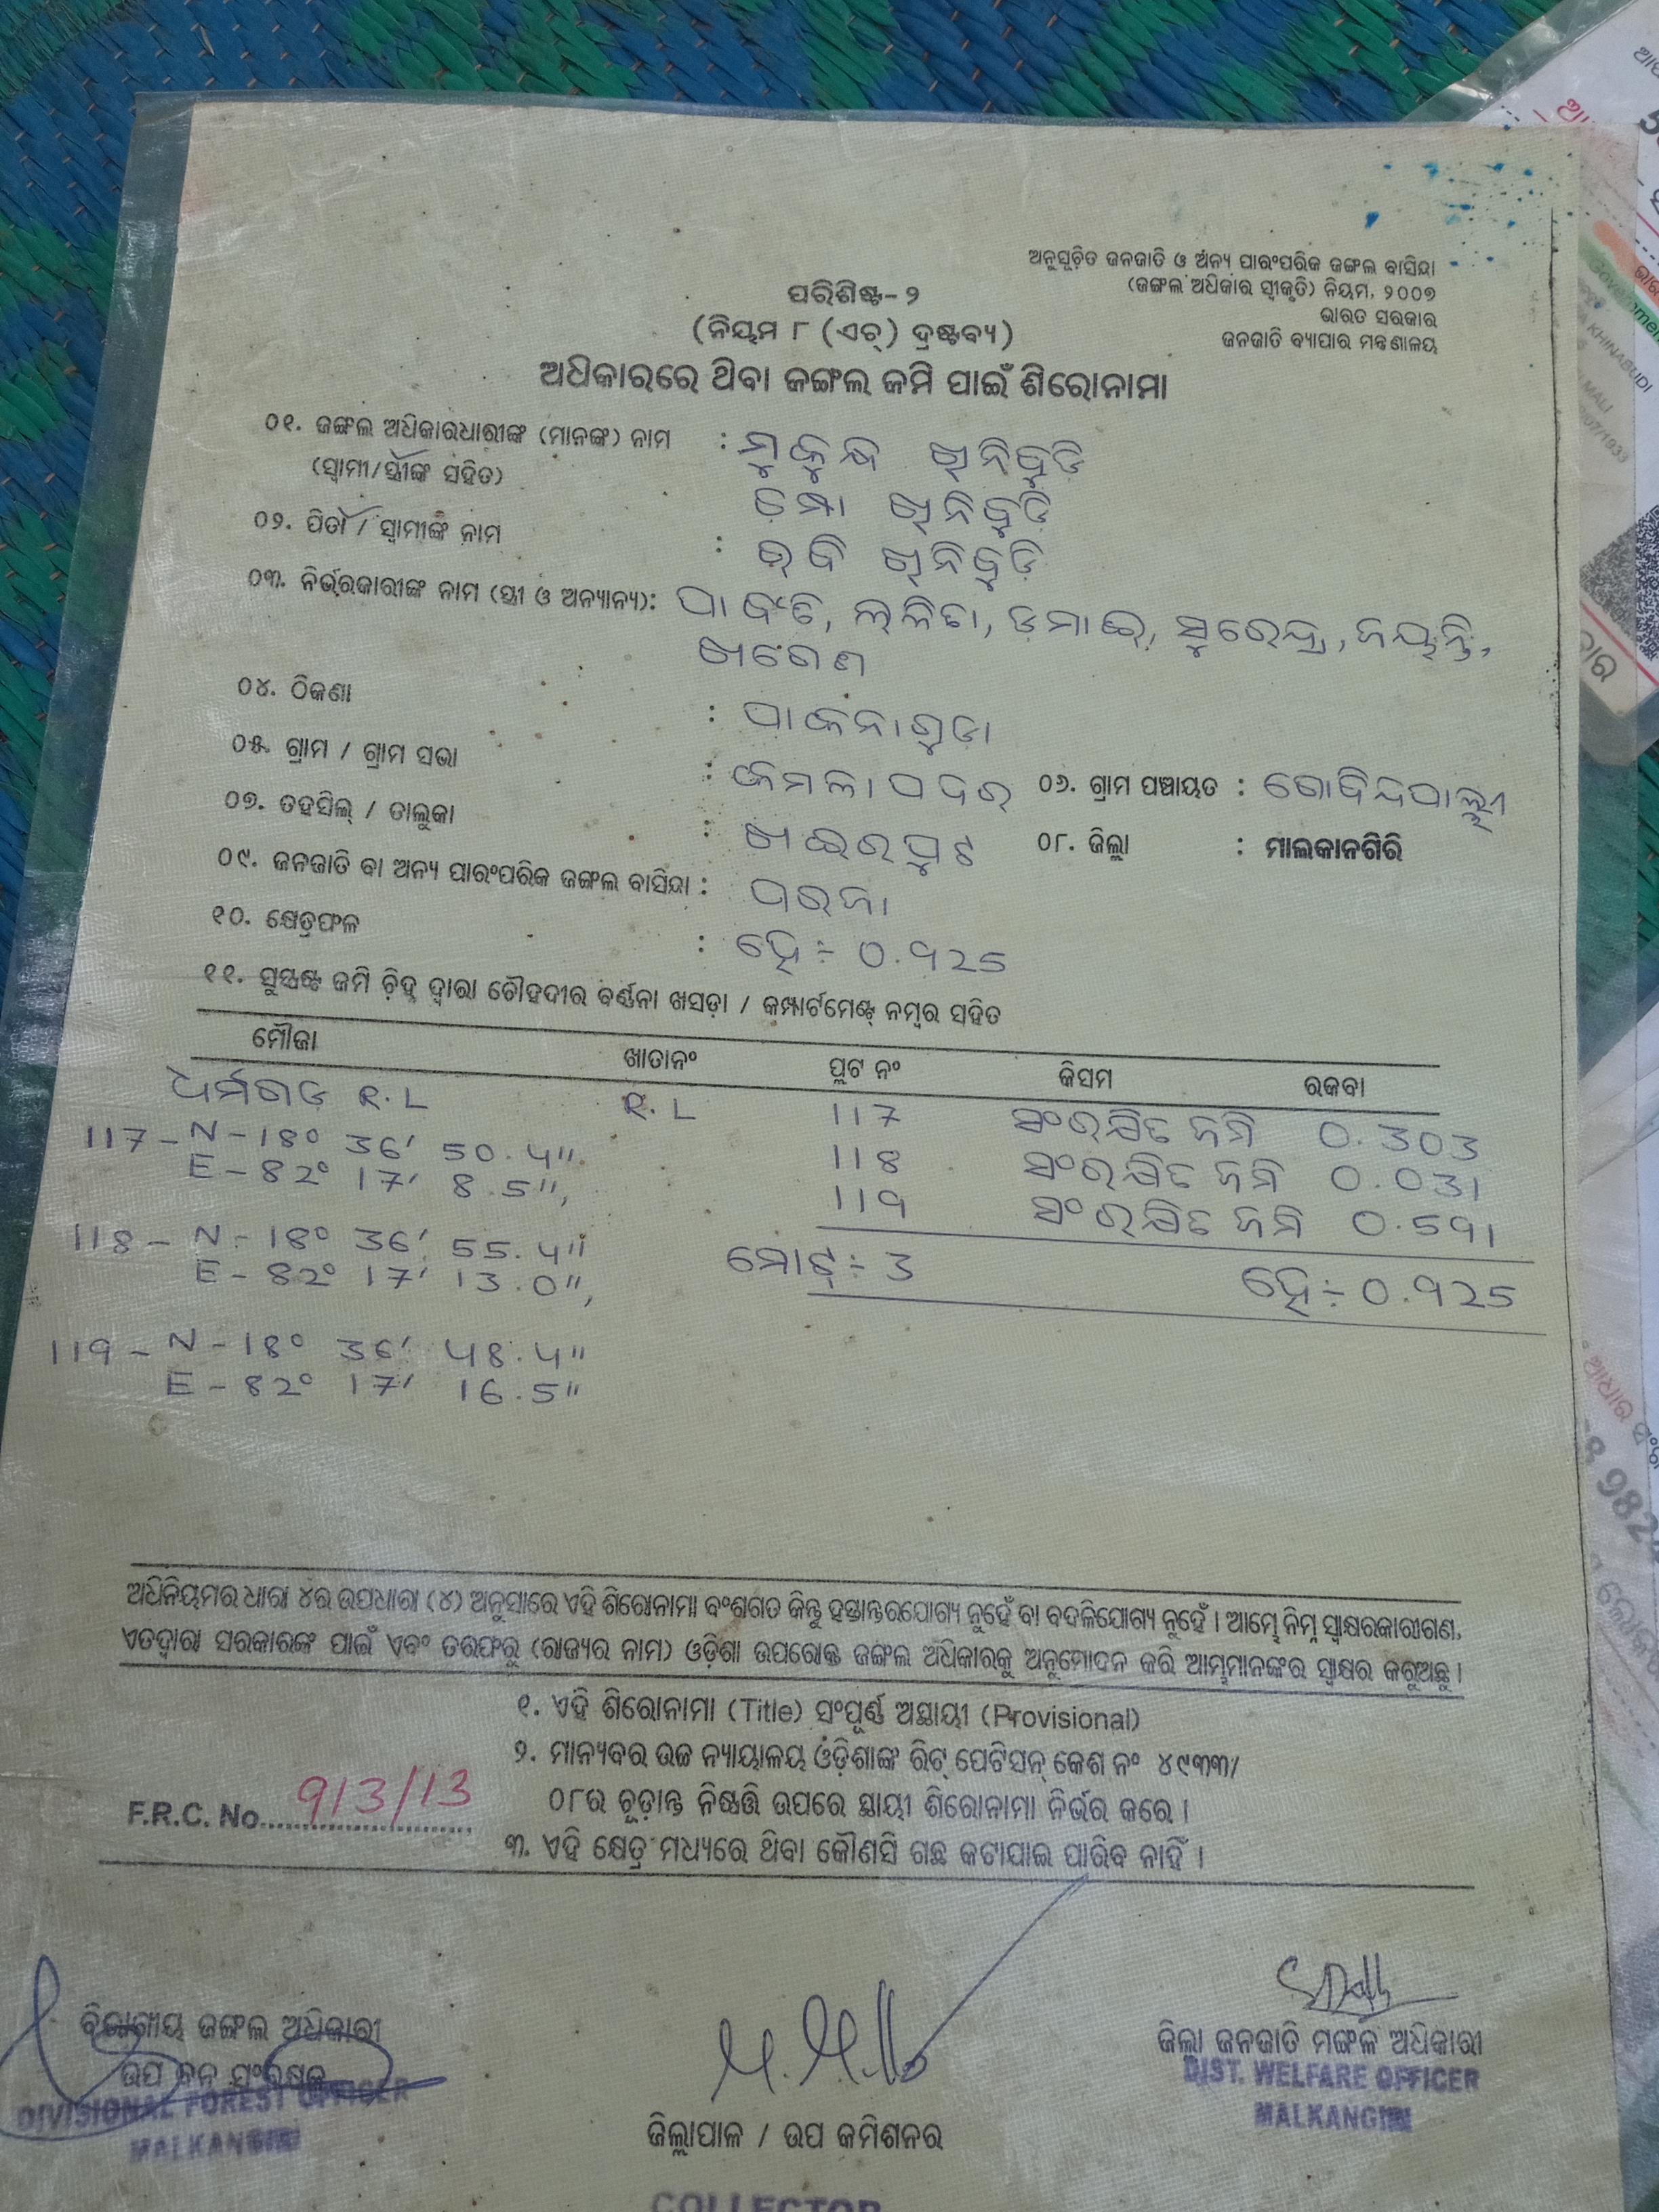 ଅନୁସୂଚିତ ଜନଜାତି ଓ ଅନ୍ୟ ପାରଂପରିକ ଜଙ୍ଗଲ ବାସିନ୍ଦା
(ଜଙ୍ଗଲ ଅଧିକାର ସ୍ୱୀକୃତି) ନିୟମ, ୨୦୦୭
ଭାରତ ସରକାର
ଜନଜାତି ବ୍ୟାପାର ମନ୍ତ୍ରଣାଳୟ
ପରିଶିଷ୍ଟ-୨
(ନିୟମ ୮ (ଏଚ୍) ଦ୍ରଷ୍ଟବ୍ୟ)
ଅଧିକାରରେ ଥିବା ଜଙ୍ଗଲ ଜମି ପାଇଁ ଶିରୋନାମା
୦୧. ଜଙ୍ଗଲ ଅଧିକାରଧାରୀଙ୍କ (ମାନଙ୍କ) ନାମ : ମୁକୁନ୍ଦ ଖିନିବୁଡି
(ସ୍ୱାମୀ/ସ୍ତ୍ରୀଙ୍କ ସହିତ) ଖିନିବୁଡି
୦୨. ପିତା / ସ୍ୱାମୀଙ୍କ ନାମ : ରବି ଖିନିବୁଡି
୦୩. ନିର୍ଭରକାରୀଙ୍କ ନାମ (ସ୍ତ୍ରୀ ଓ ଅନ୍ୟାନ୍ୟ): ପାର୍ବତି, ଲଳିତା, ଡମାଇ, ସୁରେନ୍ଦ୍ର, ଜୟନ୍ତି,
ଖଗେଣ
୦୪. ଠିକଣା : ପାକନାଗୁଡା
୦୫. ଗ୍ରାମ / ଗ୍ରାମ ସଭା : କମଳାପଦର ୦୬. ଗ୍ରାମ ପଞ୍ଚାୟତ : ଗୋବିନ୍ଦପାଲ୍ଲୀ
୦୭. ତହସିଲ୍ / ତାଲୁକା : ଖଇରପୁଟ ୦୮. ଜିଲ୍ଲା : ମାଲକାନଗିରି
୦୯. ଜନଜାତି ବା ଅନ୍ୟ ପାରଂପରିକ ଜଙ୍ଗଲ ବାସିନ୍ଦା : ପରଜା
୧୦. କ୍ଷେତ୍ରଫଳ : ହେ÷ 0.925
୧୧. ସୁସ୍ପଷ୍ଟ ଜମି ଚ଼ିହ୍ନ ଦ୍ୱାରା ଚୌହଦୀର ବର୍ଣ୍ଣନା ଖସଡ଼ା / କମ୍ପାର୍ଟମେଣ୍ଟ୍ ନମ୍ବର ସହିତ
ମୌଜା ଖାତାନଂ ପ୍ଲଟ ନଂ କିସମ ରକବା
ଧର୍ମଗଡ R.L R.L 117 ସଂରକ୍ଷିତ ଜମି 0.303
117 - N - 18° 36' 50.4" 118 ସଂରକ୍ଷିତ ଜମି 0.031
E - 82° 17' 8.5", 119 ସଂରକ୍ଷିତ ଜମି 0.591
118 - N - 18° 36' 55.4" ମୋଟ୍÷ 3 ହେ÷ 0.925
E - 82° 17' 13.0",
119 - N - 18° 36' 48.4"
E - 82° 17' 16.5"
ଅଧିନିୟମର ଧାରା ୪ର ଉପଧାରା (୪) ଅନୁସାରେ ଏହି ଶିରୋନାମା ବଂଶଗତ କିନ୍ତୁ ହସ୍ତାନ୍ତରଯୋଗ୍ୟ ନୁହେଁ ବା ବଦଳିଯୋଗ୍ୟ ନୁହେଁ । ଆମ୍ଭେ ନିମ୍ନ ସ୍ୱାକ୍ଷରକାରୀଗଣ,
ଏତଦ୍ୱାରା ସରକାରଙ୍କ ପାଇଁ ଏବଂ ତରଫରୁ (ରାଜ୍ୟର ନାମ) ଓଡ଼ିଶା ଉପରୋକ୍ତ ଜଙ୍ଗଲ ଅଧିକାରକୁ ଅନୁମୋଦନ କରି ଆମ୍ଭମାନଙ୍କର ସ୍ୱାକ୍ଷର କରୁଅଛୁ ।
୧. ଏହି ଶିରୋନାମା (Title) ସଂପୂର୍ଣ୍ଣ ଅସ୍ଥାୟୀ (Provisional)
୨. ମାନ୍ୟବର ଉଚ୍ଚ ନ୍ୟାୟାଳୟ ଓଡ଼ିଶାଙ୍କ ରିଟ୍ ପେଟିସନ୍ କେଶ ନଂ ୪୯୩୩/
୦୮ର ଚୂଡ଼ାନ୍ତ ନିଷ୍ପତ୍ତି ଉପରେ ସ୍ଥାୟୀ ଶିରୋନାମା ନିର୍ଭର କରେ ।
F.R.C. No. 913/13
୩. ଏହି କ୍ଷେତ୍ର ମଧ୍ୟରେ ଥିବା କୌଣସି ଗଛ କଟାଯାଇ ପାରିବ ନାହିଁ ।
ବିଭାଗୀୟ ଜଙ୍ଗଲ ଅଧିକାରୀ
ଉପ ବନ ସଂରକ୍ଷକ
DIVISIONAL FOREST OFFICER
MALKANGIRI
ଜିଲ୍ଲାପାଳ / ଉପ କମିଶନର
COLLECTOR
ଜିଲ୍ଲା ଜନଜାତି ମଙ୍ଗଳ ଅଧିକାରୀ
DIST. WELFARE OFFICER
MALKANGIRI